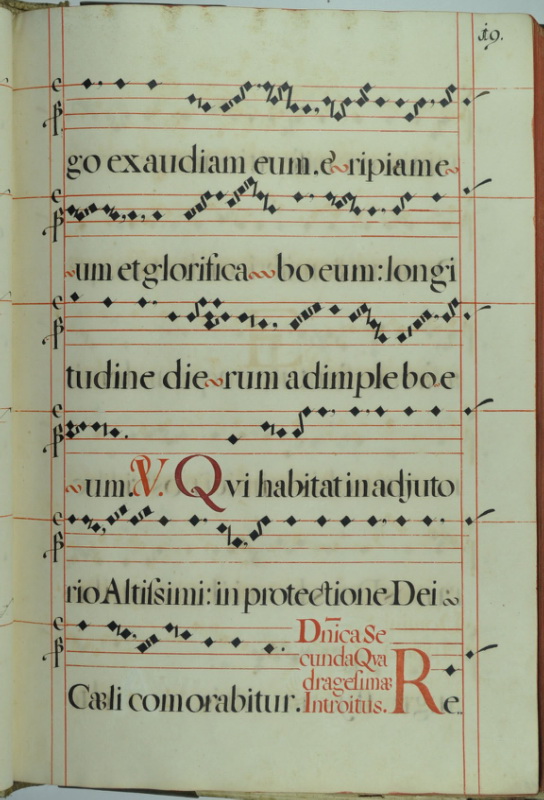 19.
go exaudiam eum. eripiam e
um et glorifica bo eum: longi
tudine dierum adimplebo e
um. V. Qvi habitat in adjuto
rio Altiſsimi: in protectione Dei
Cæli comorabitur.
Dn̄ica Se
cunda Qva
drageſimæ
Introitus.
Re